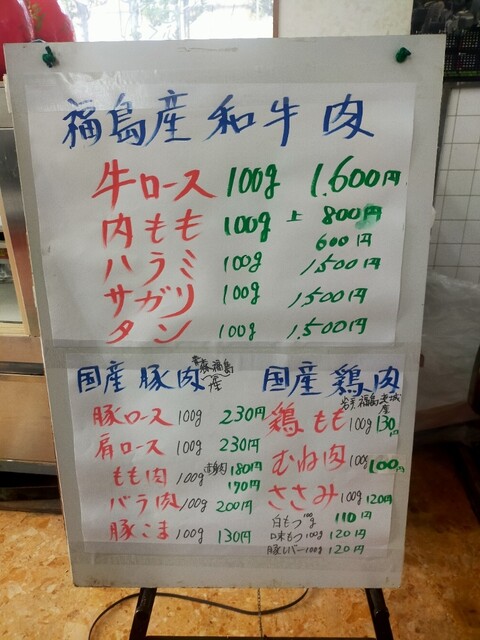 福島産 和牛肉
牛ロース 100g 1.600円
内もも 100g 上 800円
600円
ハラミ 100g 1,500円
サガリ 100g 1,500円
タン 100g 1,500円
国産 豚肉 青森福島産
豚ロース 100g 230円
肩ロース 100g 230円
もも肉 100g 180円
170円
バラ肉 100g 200円
豚こま 100g 130円
国産 鶏肉
岩手 福島 茨城産
鶏もも 100g 130円
むね肉 100g 100円
ささみ 100g 120円
白もつ 100g 110円
味もつ 100g 120円
豚レバー 100g 120円